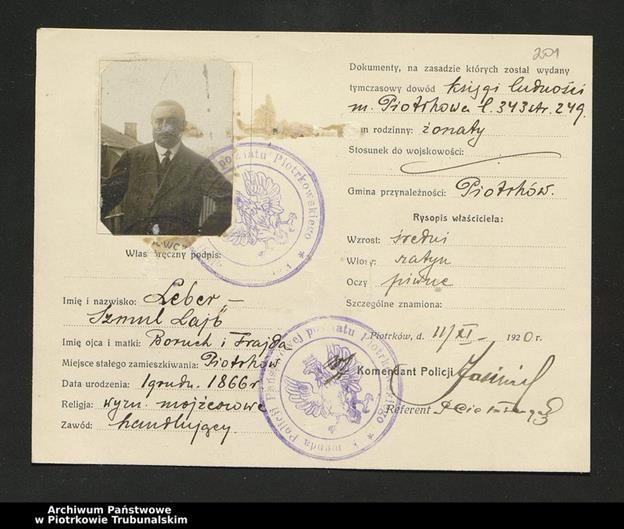 201
Własnoręczny podpis:
Imię i nazwisko: Leber –
Szmul Lajb
Imię ojca i matki: Boruch i Frajda
Miejsce stałego zamieszkiwania: Piotrków
Data urodzenia: 1 grudn. 1866 r
Religja: wyzn. mojżeszowe
Zawód: handlujący.
Dokumenty, na zasadzie których został wydany
tymczasowy dowód księgi ludności
m. Piotrkowa l. 343 str. 249.
rodzinny: żonaty
Stosunek do wojskowości:
Gmina przynależności: Piotrków.
Rysopis właściciela:
Wzrost: średni
Włosy: szatyn
Oczy piwne
Szczególne znamiona:
Piotrków, d. 11/XI – 1920 r.
Komendant Policji
Referent
powiatu Piotrkowskiego *
Komenda Policji Państwowej powiatu Piotrkowskiego *
Archiwum Państwowe
w Piotrkowie Trubunalskim